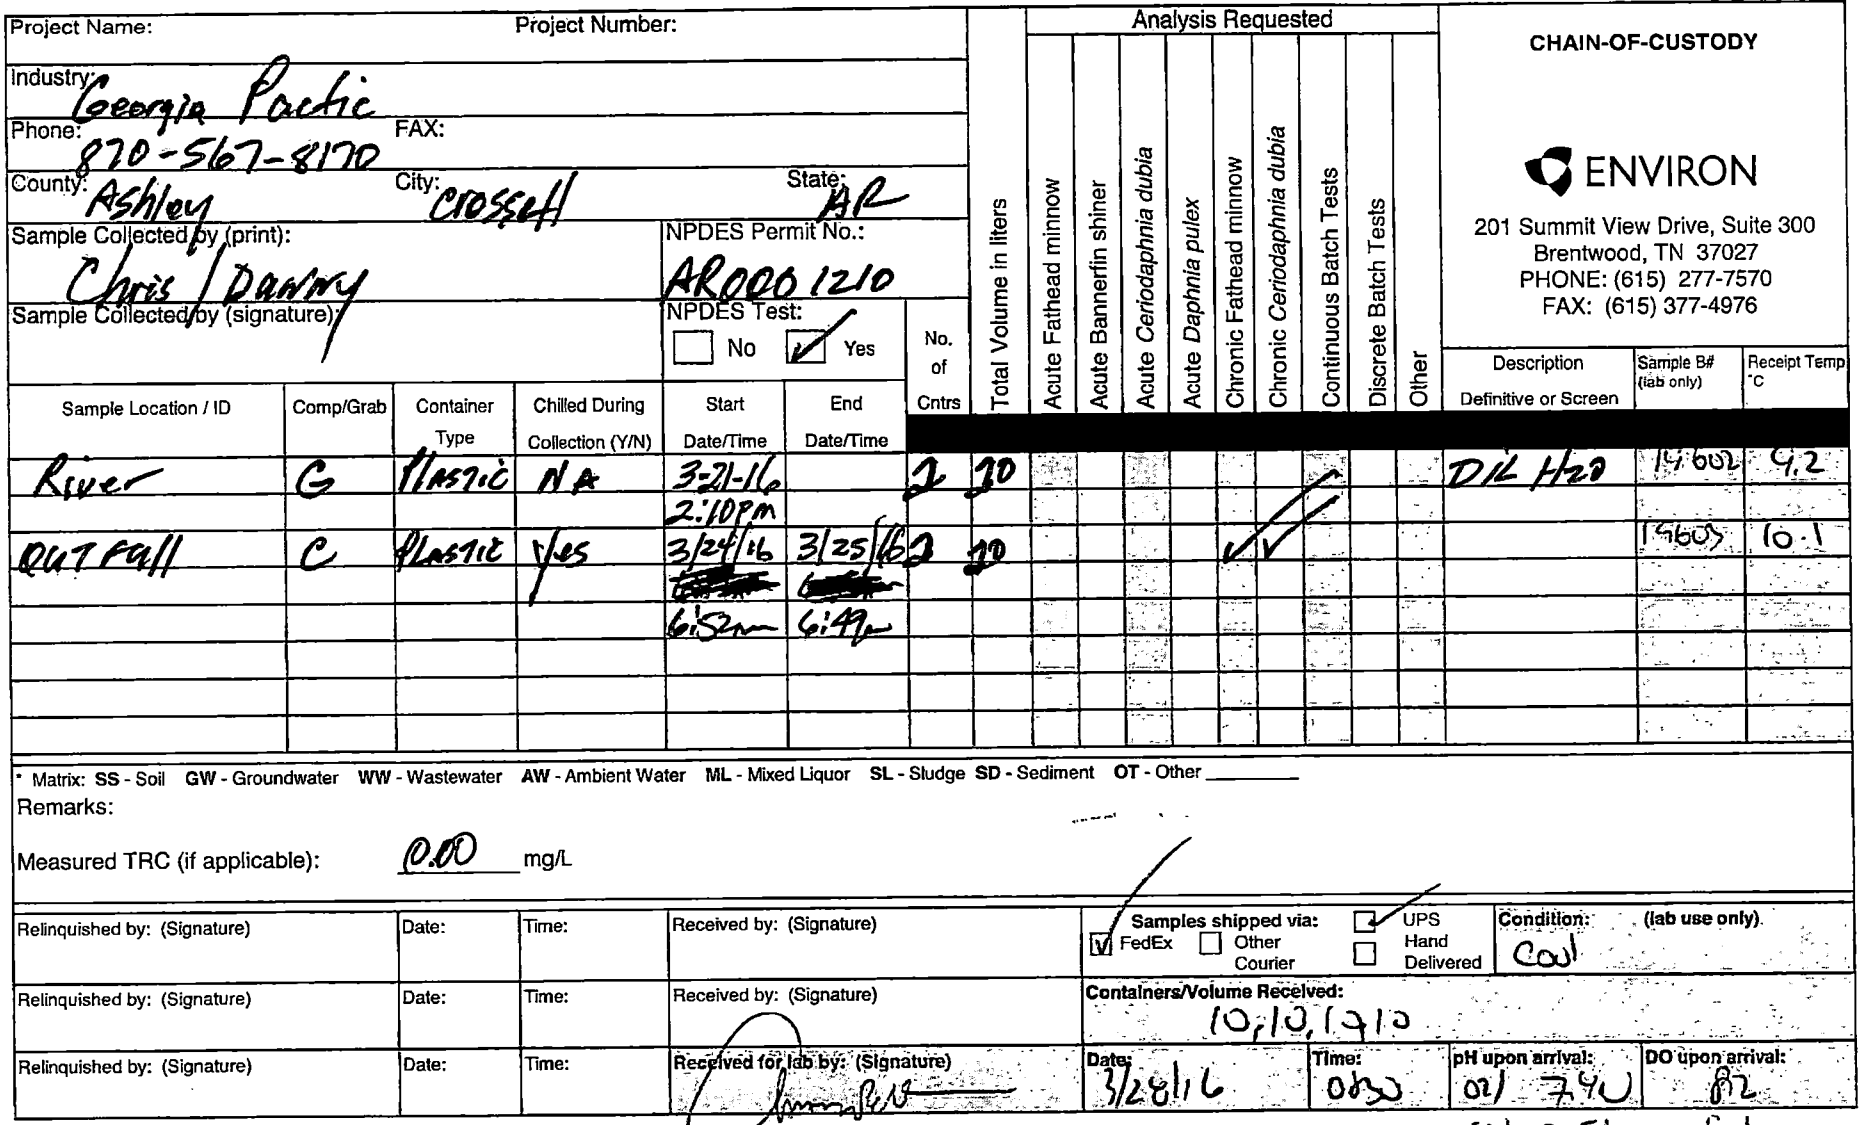 Project Name: Project Number:
Industry: Georgia Pacific
Phone: 870-567-8170 FAX:
County: Ashley City: Crossett State: AR
Sample Collected by (print): Chris / Danny
NPDES Permit No.: AR0001210
Sample Collected by (signature):
NPDES Test: No Yes
Analysis Requested
CHAIN-OF-CUSTODY
ENVIRON
201 Summit View Drive, Suite 300
Brentwood, TN 37027
PHONE: (615) 277-7570
FAX: (615) 377-4976
Sample Location / ID
Comp/Grab
Container Type
Chilled During Collection (Y/N)
Start Date/Time
End Date/Time
No. of Cntrs
Total Volume in liters
Acute Fathead minnow
Acute Bannerfin shiner
Acute Ceriodaphnia dubia
Acute Daphnia pulex
Chronic Fathead minnow
Chronic Ceriodaphnia dubia
Continuous Batch Tests
Discrete Batch Tests
Other
Description Definitive or Screen
Sample B# (lab only)
Receipt Temp °C
River G Plastic NA 3-21-16 2 20 Dil H20 14602
2:10pm
Outfall C Plastic Yes 3/24/16 3/25/16 2 20 10.1
6:52 6:49
* Matrix: SS - Soil GW - Groundwater WW - Wastewater AW - Ambient Water ML - Mixed Liquor SL - Sludge SD - Sediment OT - Other
Remarks:
Measured TRC (if applicable): 0.00 mg/L
Relinquished by: (Signature) Date: Time: Received by: (Signature)
Samples shipped via: UPS
FedEx Other Courier Hand Delivered
Condition: (lab use only).
Cool
Relinquished by: (Signature) Date: Time: Received by: (Signature)
Containers/Volume Received:
10,10,10,10
Relinquished by: (Signature) Date: Time: Received for lab by: (Signature)
Date: 3/28/16
Time:
pH upon arrival:
DO upon arrival: